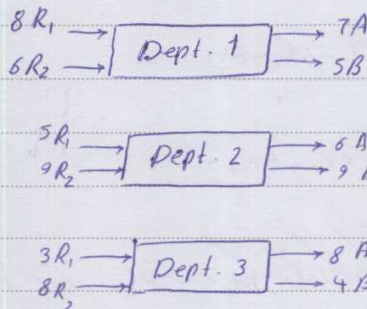 8 R₁ → Dept. 1 → 7 A
6 R₂ → → 5 B
5 R₁ → Dept. 2 → 6 A
9 R₂ → → 9
3 R₁ → Dept. 3 → 8 A
8 R₂ → → 4 B